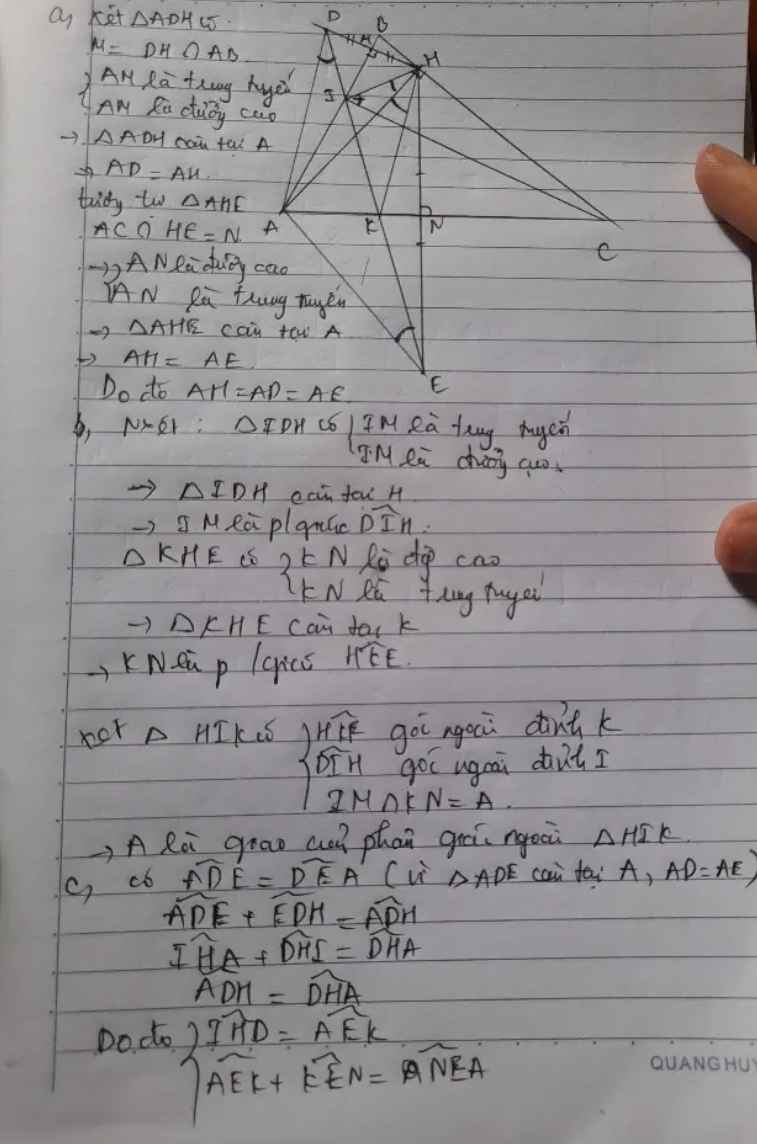 a, Xét △ADH có.
M = DH ∩ AB
{ AM là trung tuyến
AM là đường cao
→ △ADH cân tại A
→ AD = AH.
tương tự △AHE
AC ∩ HE = N.
→ { AN là đường cao
AN là trung tuyến
→ △AHE cân tại A
→ AH = AE.
Do đó AH = AD = AE.
D
B
H
M
I
A
K
N
C
E
b, N xét: △IDH có { IM là trung tuyến
IM là đường cao.
→ △IDH cân tại H
→ IM là p/giác DIH.
△KHE có { KN là đg cao
KN là trung tuyến
→ △KHE cân tại K
→ KN là p/giác HEE.
xét △ HIK có { HKE góc ngoài đỉnh K
DIH góc ngoài đỉnh I
IM ∩ KN = A.
→ A là giao của phân giác ngoài △HIK.
c, có ADE = DEA (vì △ADE cân tại A, AD = AE)
ADE + EDH = ADH
IHA + DHI = DHA
ADH = DHA
Do đó { IHD = AEK
AEK + KEN = NEA
QUANG HUY